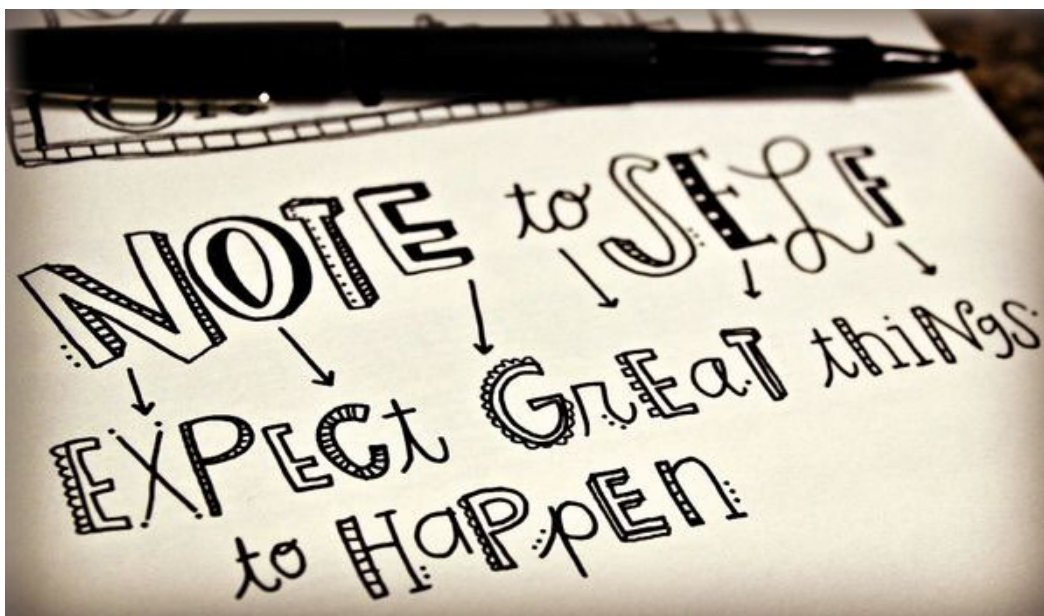 NOTE to SELF
EXPECt GrEaT thiNgs
to HaPpEn